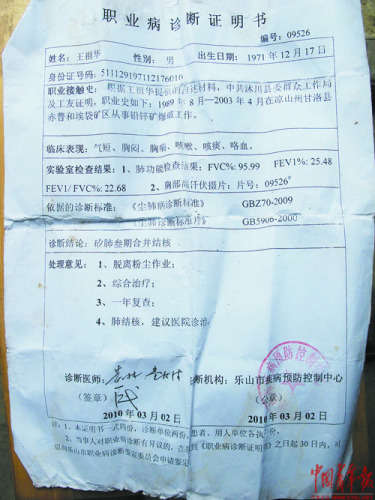 职业病诊断证明书
编号：09526
姓名：王祖华 性别：男 出生日期：1971年12月17日
身份证号码：511129197112176010
职业接触史：根据王祖华提供的自述材料，中共沐川县委群众工作局
及工友证明，职业史如下：1989年8月—2003年4月在凉山州甘洛县
赤普和埃袋矿区从事铅锌矿爆破工作。
临床表现：气短、胸闷、胸痛、咳嗽、咳痰、咯血。
实验室检查结果：1、肺功能检查结果：FVC%: 95.99 FEV1%: 25.48
FEV1/ FVC%: 22.68 2、胸部高仟伏摄片：片号：09526#
依据的诊断标准：《尘肺病诊断标准》 GBZ70-2009
《尘肺病诊断标准片》 GB5906-2000
诊断结论：矽肺叁期合并结核
处理意见：1、脱离粉尘作业；
2、综合治疗；
3、一年复查；
4、肺结核，建议医院诊治
诊断医师： 诊断机构：乐山市疾病预防控制中心
（签章） （公章）
2010年03月02日 2010年03月02日
注：1、本证明书一式四份，诊断单位两份，患者、用人单位各执一份。
2、当事人对职业病诊断有异议的，在接到《职业病诊断证明书》之日起30日内，可
向乐山市职业病诊断鉴定委员会申请鉴定
中国青年报